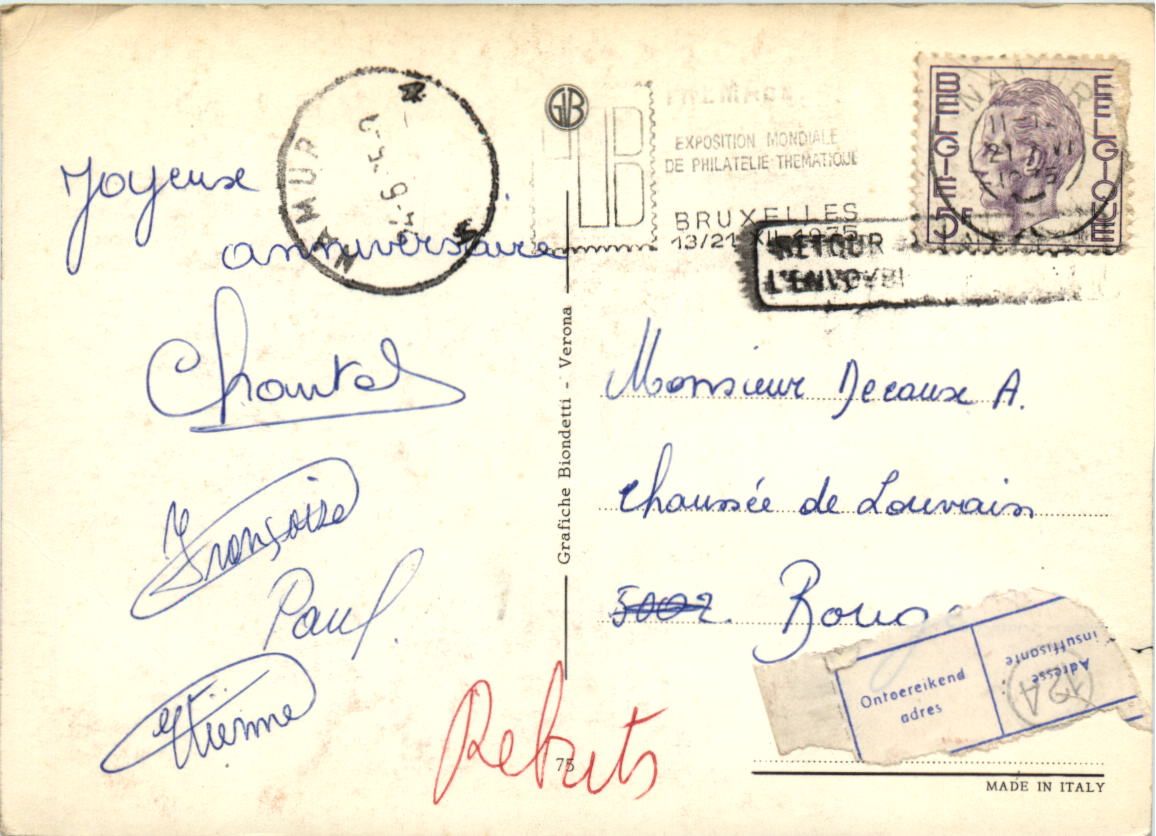 Joyeuse
anniversaire
Chantal
Françoise
Paul.
Etienne
NAMUR
GB
Grafiche Biondetti - Verona
75
Rebuts
EXPOSITION MONDIALE
DE PHILATELIE THEMATIQUE
BRUXELLES
13/21 XII 1975
BELGIE
BELGIQUE
5F
NAMUR
RETOUR
L'ENVOYEUR
Monsieur Decaux A.
Chaussée de Louvain
5002. Bouge
Ontoereikend
adres
Adresse
insuffisante
MADE IN ITALY